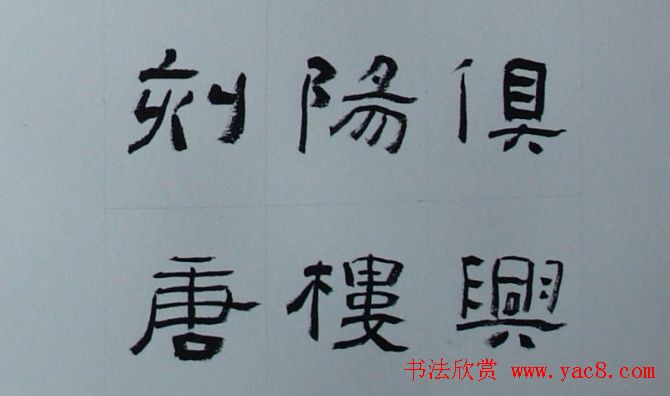 俱興
陽樓
刻唐
书法欣赏 www.yac8.com